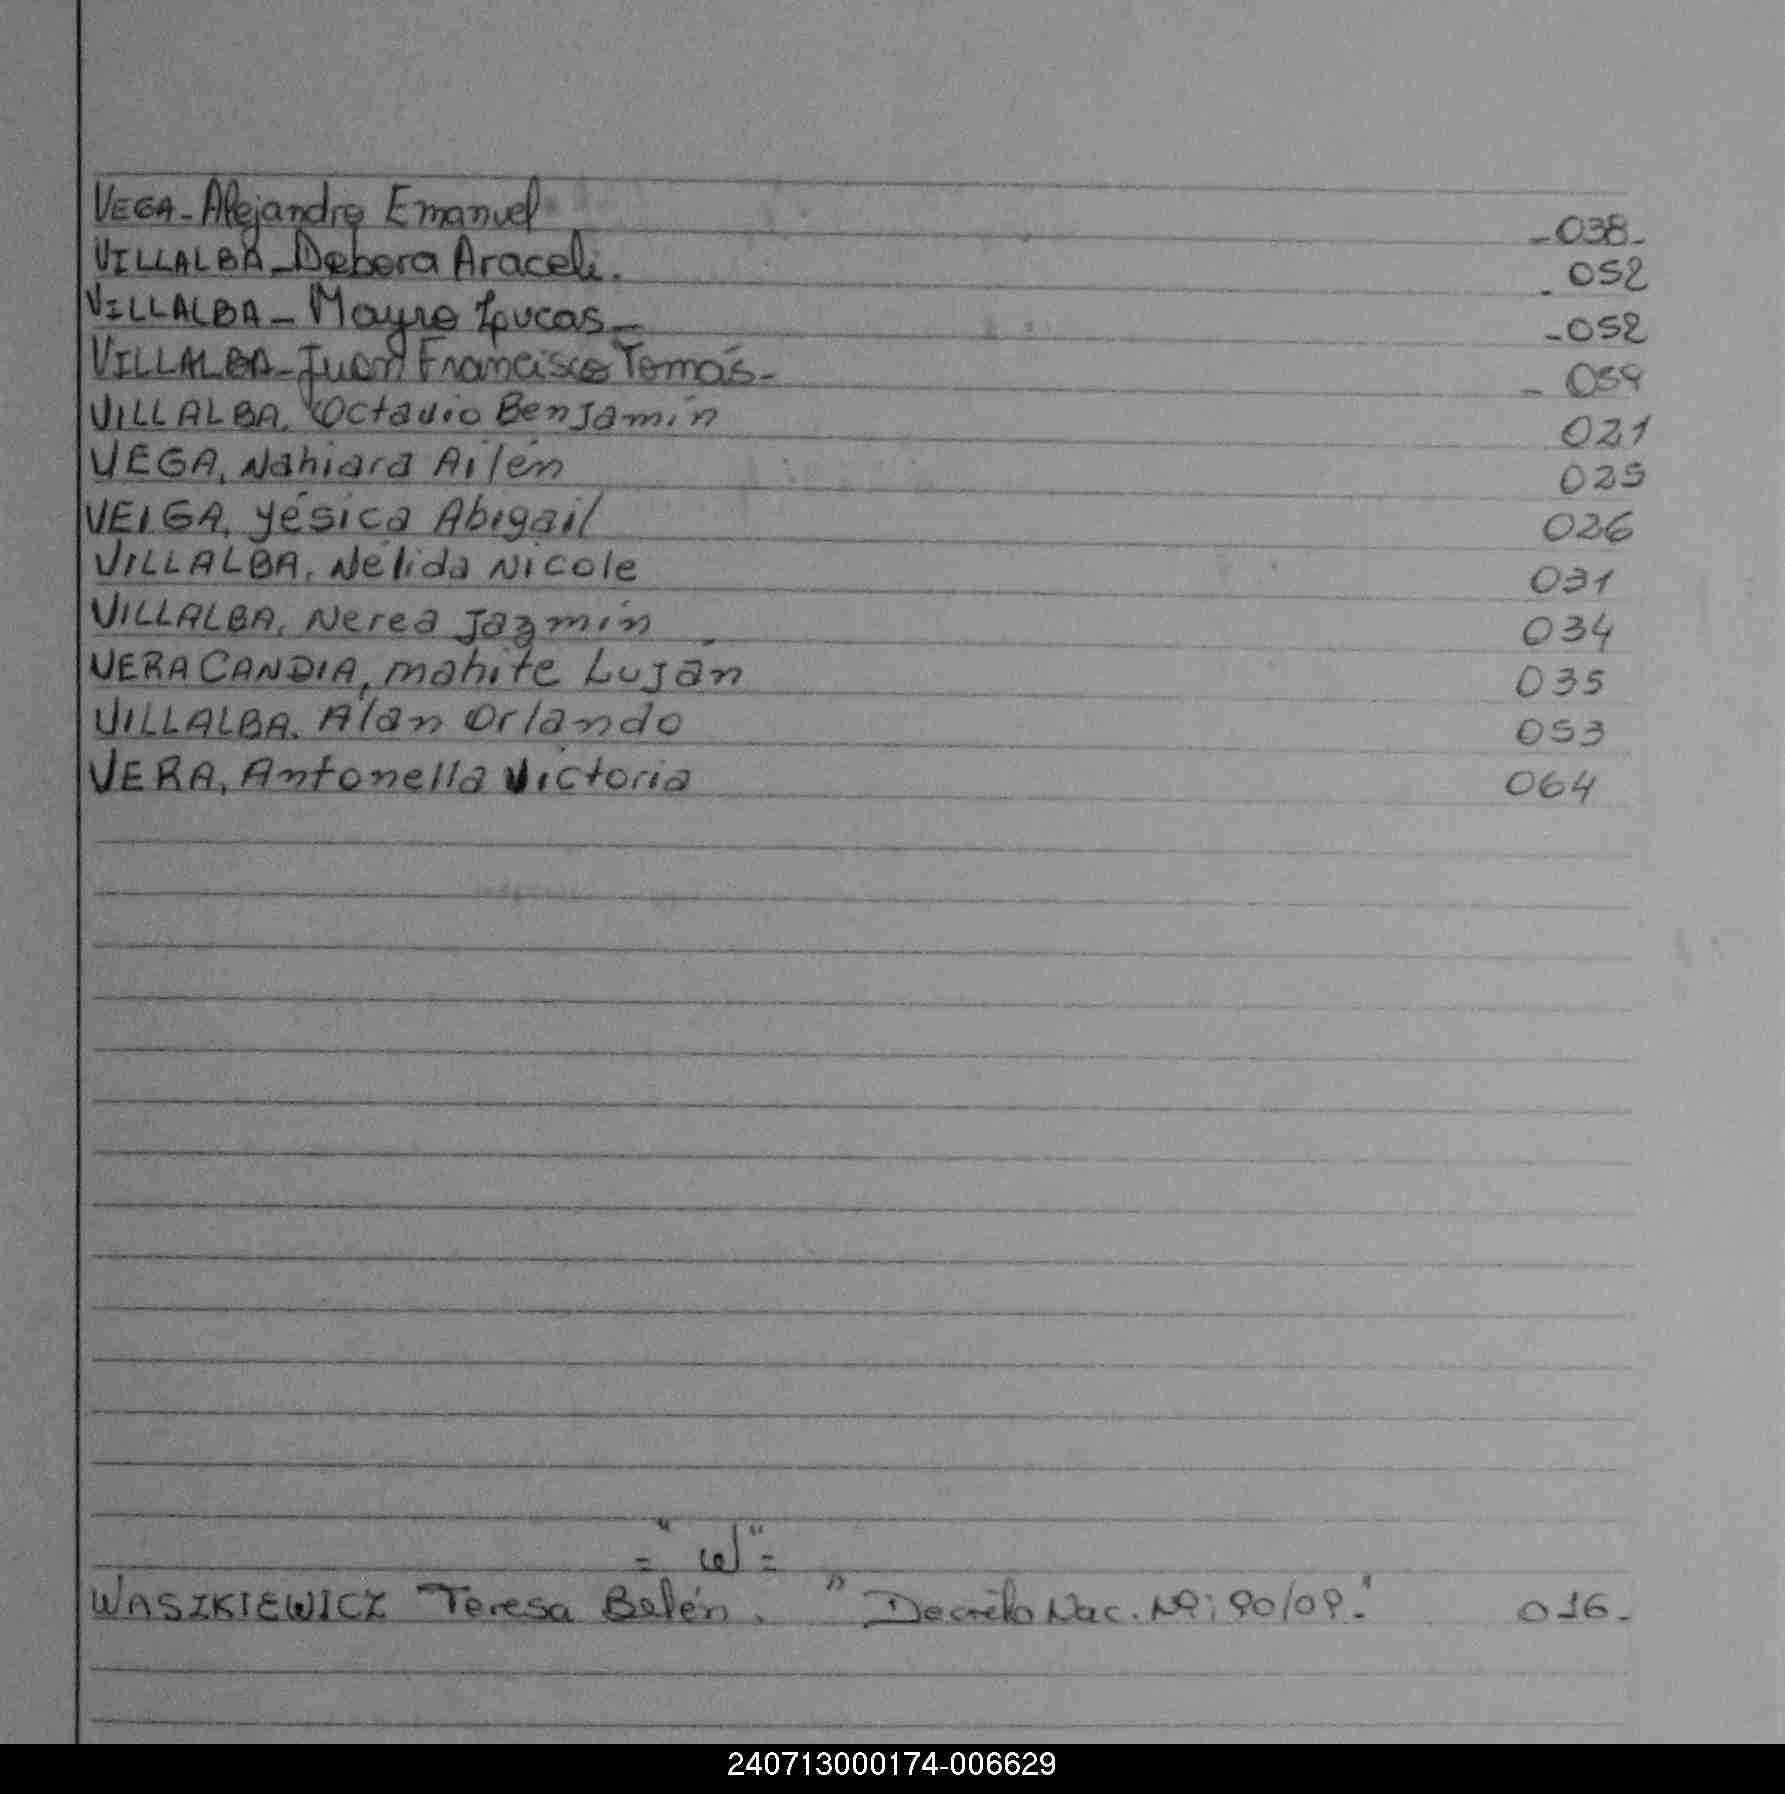 VEGA - Alejandro Emanuel -038-
VILLALBA - Debora Araceli. - 052
VILLALBA - Mayro Lucas - -052
VILLALBA - Juan Francisco Tomás - - 059
VILLALBA, Octavio Benjamín 021
VEGA, Nahiara Ailén 025
VEIGA, Yésica Abigail 026
VILLALBA, Nélida Nicole 031
VILLALBA, Nerea Jazmín 034
VERA CANDIA, Mahite Luján 035
VILLALBA. Alan Orlando 053
VERA, Antonella Victoria 064
= "W" =
WASZKIEWICZ Teresa Belén. "Decreto Nac. Nº: 90/09." 016.
240713000174-006629